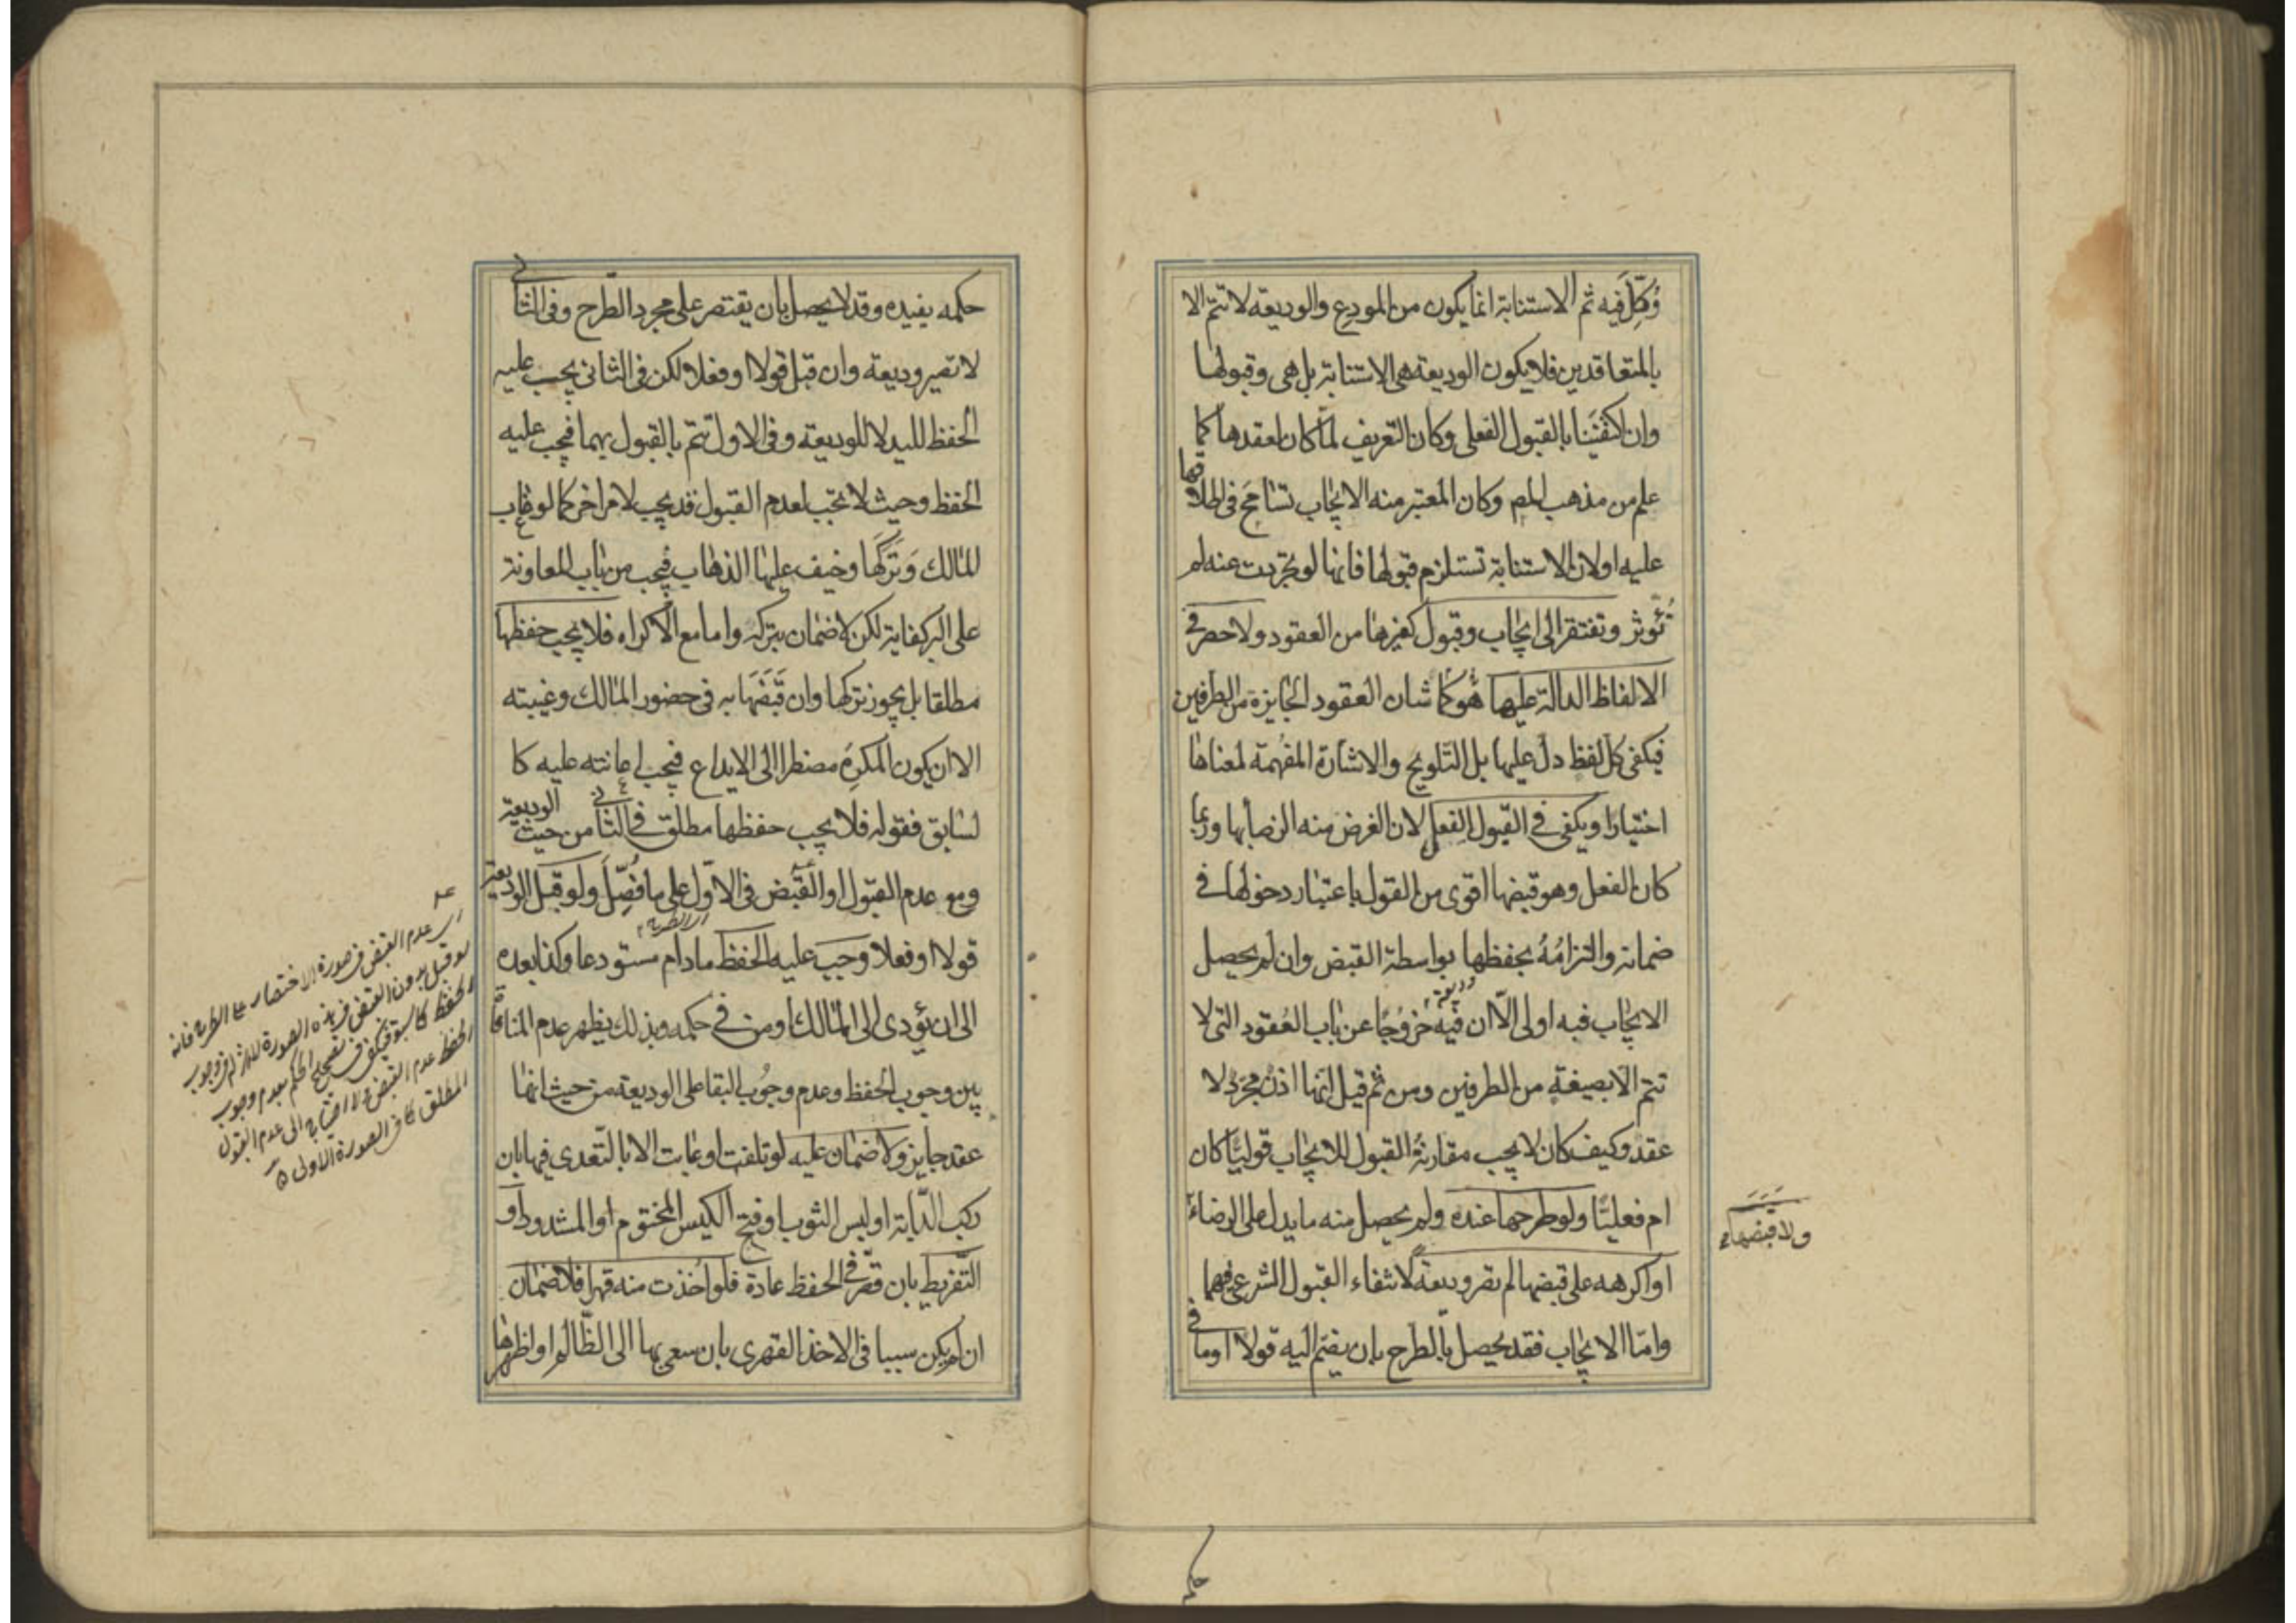 وُكِّلَ فيه ثم الاستنابة انما يكون من المودِع والوديعة لا تتمّ الا
بالمتعاقدين فلا يكون الوديعة هى الاستنابة بل هى وقبولها
وان اكتفَيْنا بالقبول الفعلى وكان التعريف لمّا كان لعقدها كما
علم من مذهب المصـ وكان المعتبر منه الايجاب تسَامَحَ فى اطلاقها
عليه او لان الاستنابة تستلزم قبولها فانها لو تجرّدت عنه لم
تُؤثّر وتفتقر الى ايجاب وقبول كغيرها من العقود ولا حصر فى
الالفاظ الدالة عليها هو كما شان العقود الجايزة من الطرفين
فيكفى كل لفظ دلّ عليها بل التّلويح والاشارة المفْهِمة لمعناها
اختيارا ويكفى فى القبول الفعل لان الغرض منه الرضا بها وربما
كان الفعل وهو قبضها اقوى من القول باعتبار دخولها فى
ضمانه والتزامُهُ بحفظها بواسطة القبض وان لم يحصل
الايجاب فيه اولى الّا ان فيه خروُجًا عن باب العُقود التى لا
تتم الّا بصيغةٍ من الطرفين ومن ثم قيل انها اذن مجرّد لا
عقد وكيف كان لا يجب مقارنةُ القبول للايجاب قوليًّا كان
ام فعليًّا ولو طرحها عنده ولم يحصل منه ما يدل على الرضاء
ولا قبضها
او اكرهه على قبضها لم تصر وديعةً لانتفاء القبول الشرعى فيهما
وامّا الايجاب فقد يحصل بالطّرح بان يضمّ اليه قولا او ما فى
حكمه يفيده وقد لا يحصل بان يقتصر على مجرد الطّرح وفى الثانى
لا تصير وديعة وان قبل قولا او فعلا لكن فى الثانى يجب عليه
الحفظ لليد لا للوديعة وفى الاول تتمّ بالقبول بهما فيجب عليه
الحفظ وحيث لا يجب لعدم القبول قد يجب لامر اخر كما لو غاب
المالك وَتَرَكَها وخيف عليها الذهاب فيجب من باب المعاونة
على البر كفاية لكن لا ضمان بتركه واما مع الاكراه فلا يجب حفظها
مطلقا بل يجوز تركها وان قَبَضَهَا به فى حضور المالك وغيبته
الا ان يكون المكرِهُ مضطرا الى الايداع فيجب اعانته عليه كا
لسّابق فقوله فلا يجب حفظها مطلق فى الثانى من حيث الوديعة
ومع عدم القبول او القبض فى الاوّل على ما فُصِّلَ ولو قبل الوديعة
قولا او فعلا وجب عليه الحفظ مادام مستودعا وكذا بعده
الى ان يؤدى الى المالك او من فى حكمه وبذلك يظهر عدم المنافاة
بين وجوب الحفظ وعدم وجُوب البقا على الوديعة من حيث انها
عقد جايز ولا ضمان عليه لو تلفت او عابت الا بالتّعدى فيها بان
ركب الدّابة او لبس الثوب او فتح الكيس المختوم او المشدود او
التّفريط بان قصّر فى الحفظ عادة فلو اُخذت منه قهرا فلا ضمان
ان لم يكن سببا فى الاخذ القهرى بان سعى بها الى الظّالم او اظهرها
اى عدم القبض فى صورة الاختصار على الطرح فانه
لو قبل بدون القبض فى هذه الصورة للاثر له فى وجوب
الحفظ كما سبق فيكفى فى تصحيح الحكم بعدم وجوب
الحفظ عدم القبض ولا احتياج الى عدم القبول
المطلق كما فى الصورة الاولى